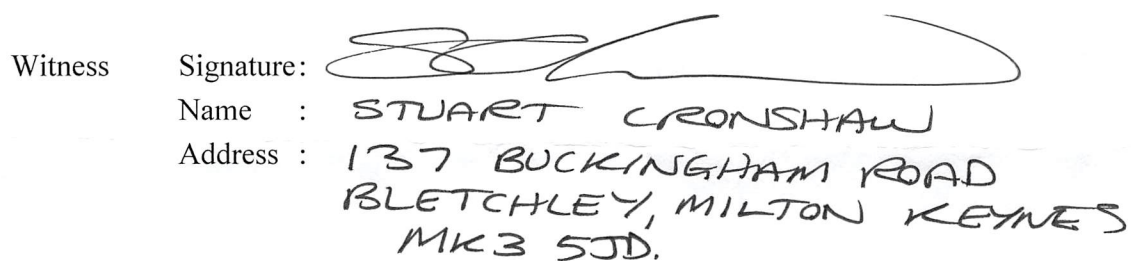 Witness Signature:
Name : STUART CRONSHAW
Address : 137 BUCKINGHAM ROAD
BLETCHLEY, MILTON KEYNES
MK3 5JD.